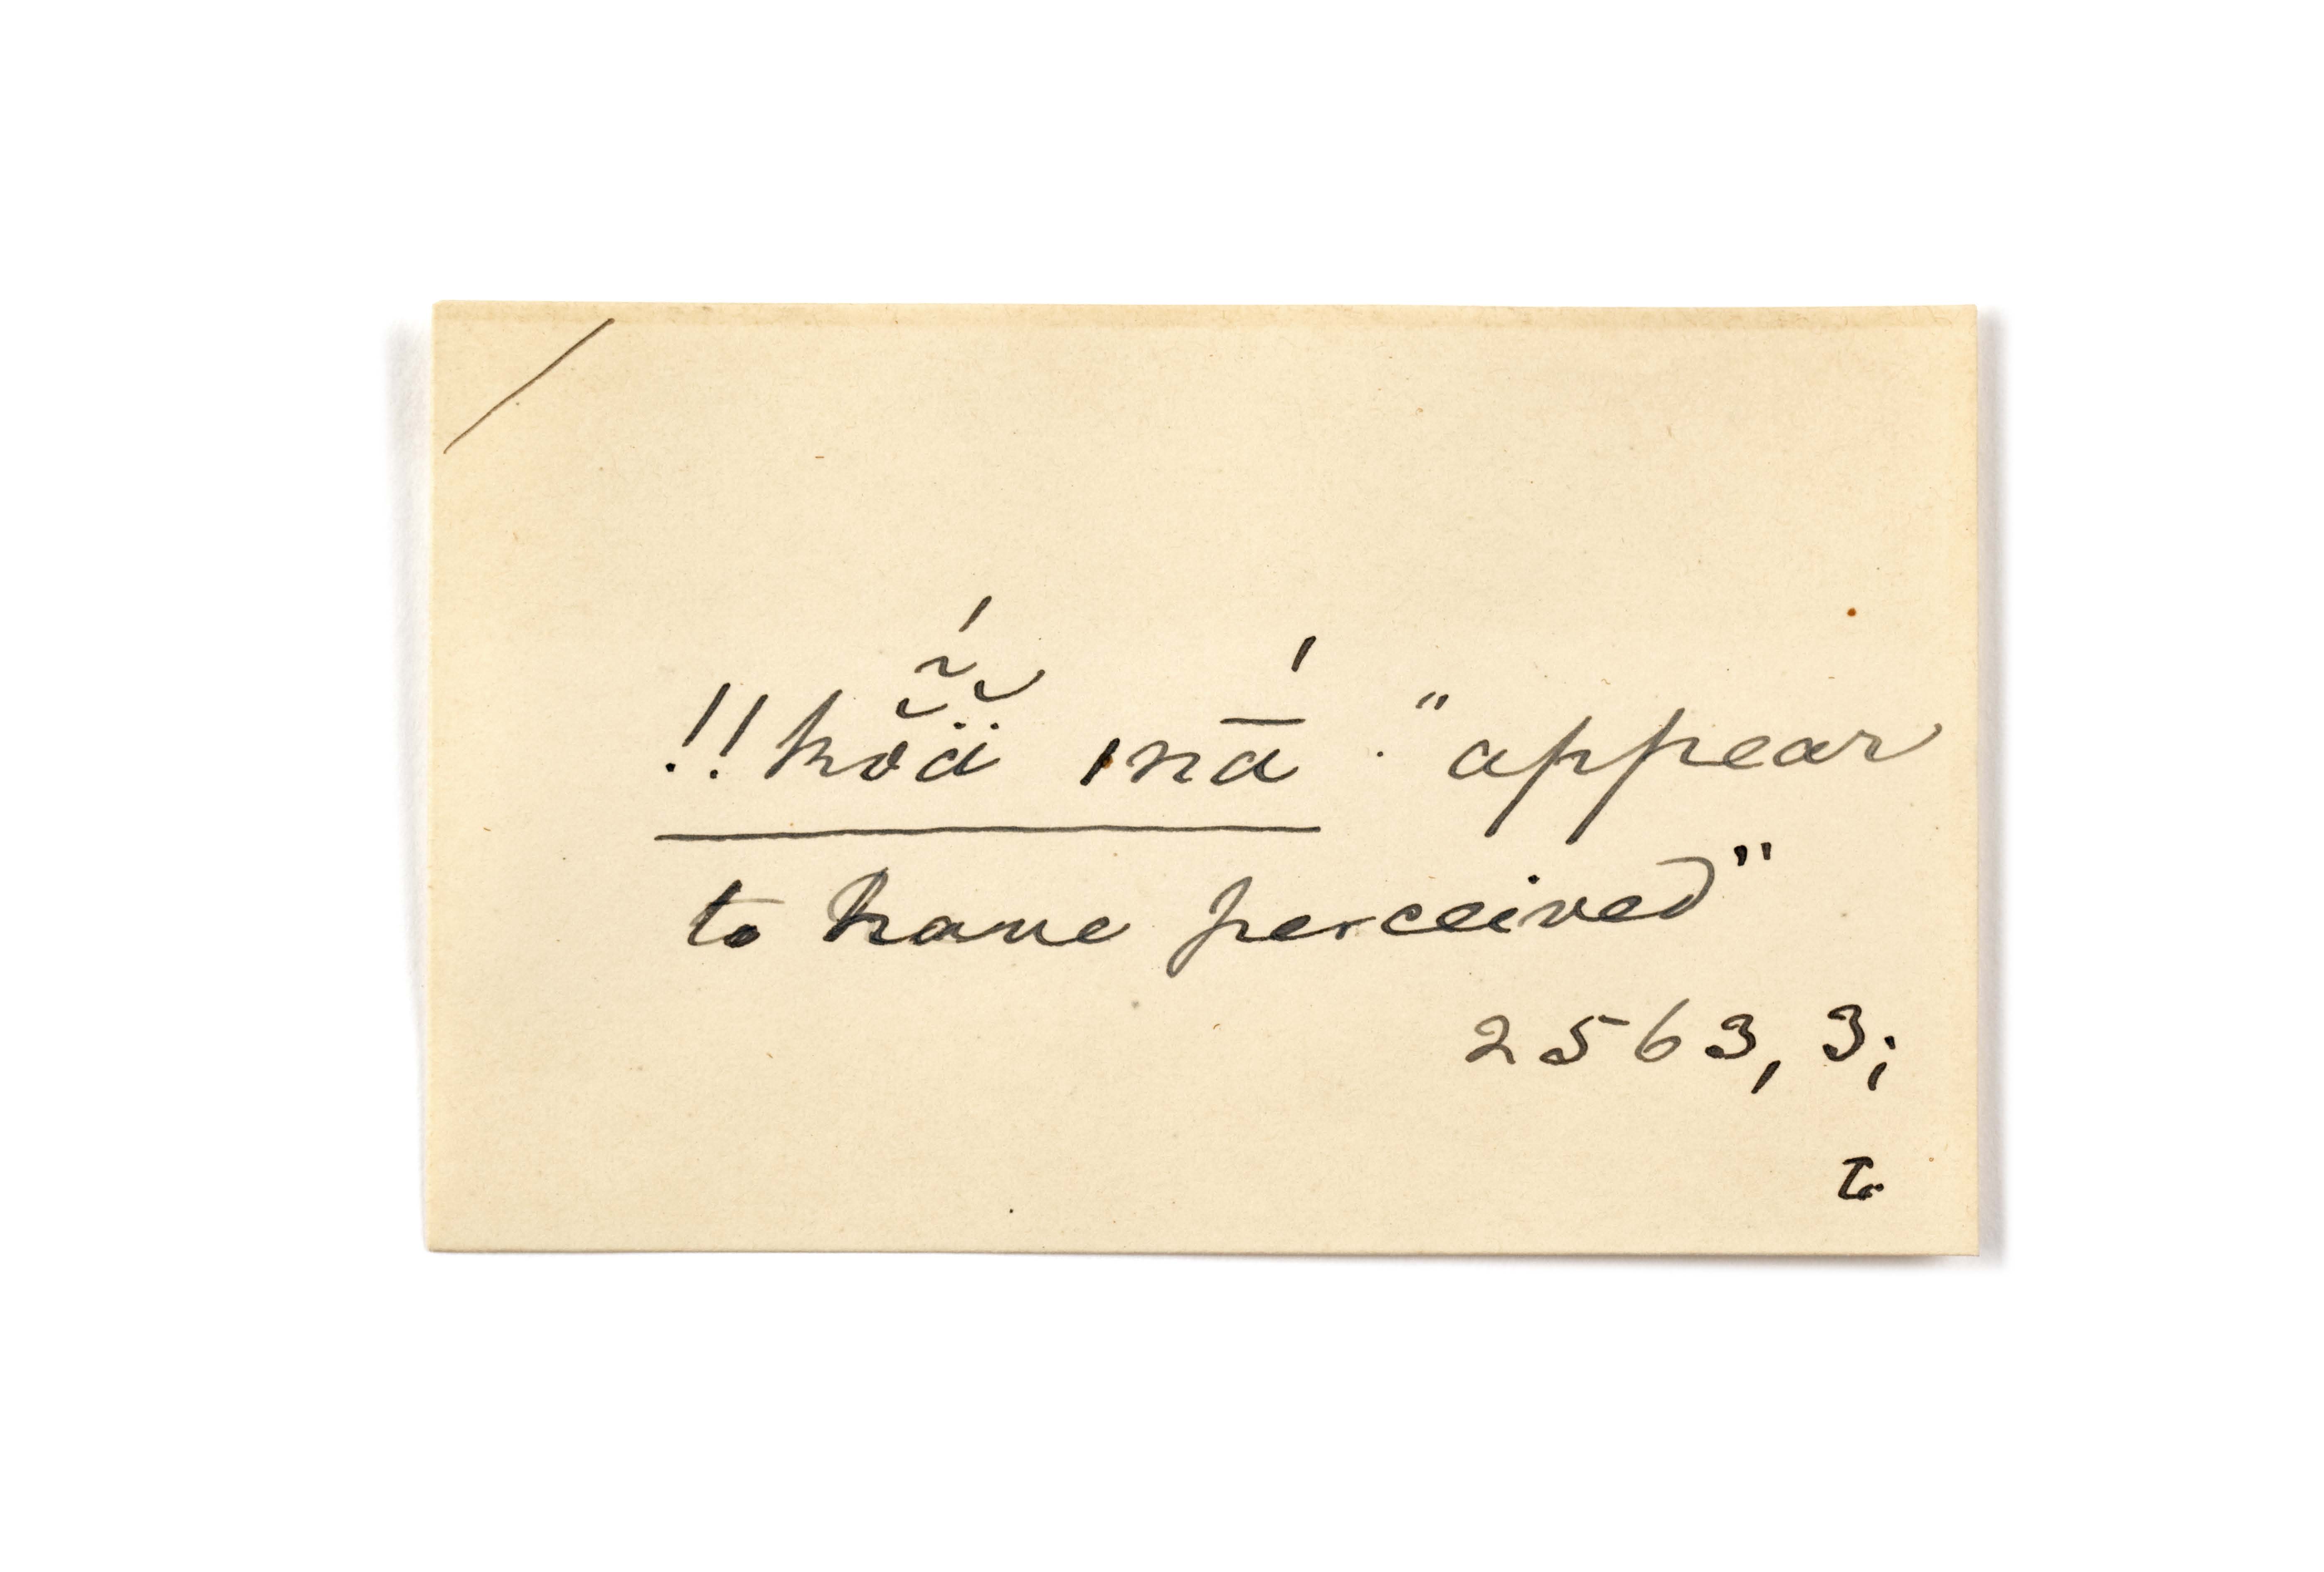 !!kŏ̃́ä̆ ıná̄. "appear
to have perceived"
2563, 3;